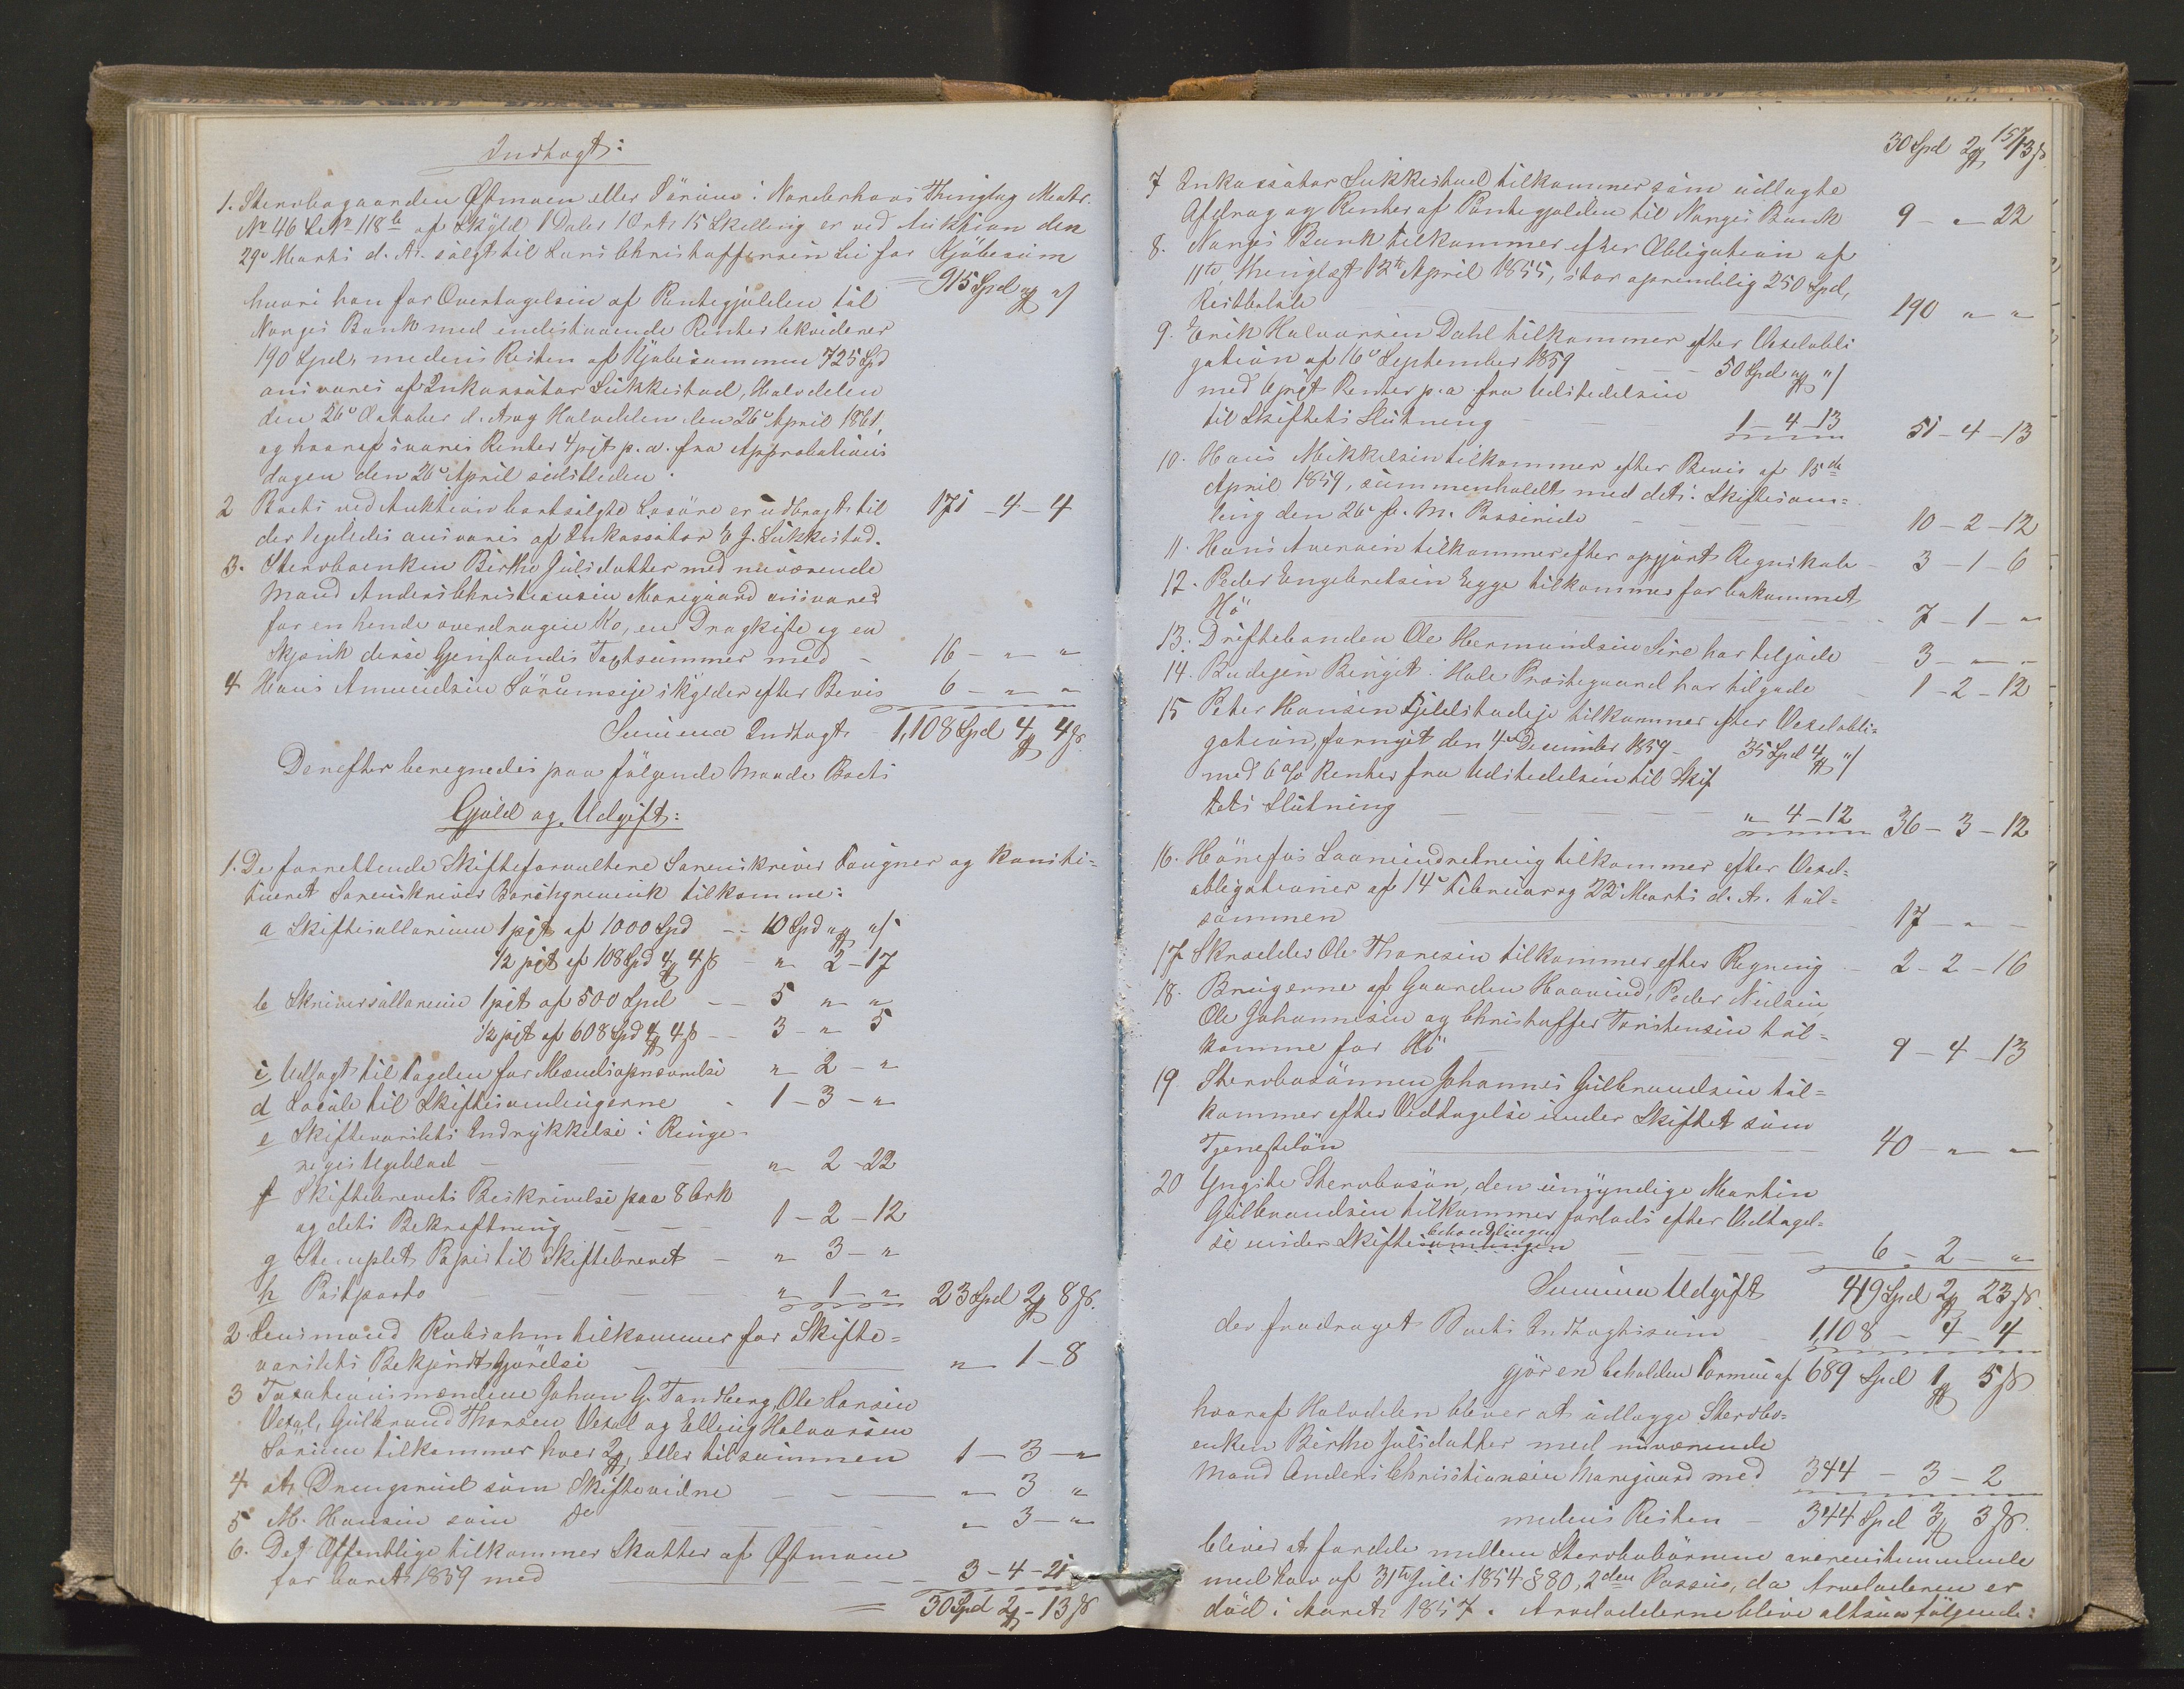 Indtægt:
1. Stervbogaarden Østmoen eller Sörum i Norderhovs Thinglag Matr.
No 46 L. No 118b af Skyld 1 Daler 1 Ort 15 Skilling er ved Auktion den
29de Marts d. A. solgt til Lars Christoffersen Lie for Kjöbesum
hvori han for Overtagelsen af Pantegjælden til 915 Spd " ₰ " ß
Norges Bank med indestaaende Renter likviderer
190 Spd, medens Resten af Kjöbesummen 725 Spd
ansvares af Inkassator Sukkestad, Halvdelen
den 26de Oktober d. A. og Halvdelen den 26de April 1861,
og hvoraf svares Renter 4 pCt p. a. fra Approbations
dagen den 26de April sidstleden.
2 Boets ved Auktion bortsolgte Lösöre er udbragt til 171 - 4 - 4
der ligeledes ansvares af Inkassator E. J. Sukkestad.
3. Stervboenken Birthe Julsdatter med nuværende
Mand Anders Christiansen Moregaard ansvares
for en hende overdragen Ko, en Dragkiste og en
Skjænk disse Gjenstandes Taxtsummer med - 16 - " - "
4 Hans Amundsen Sörumseje skylder efter Bevis 6 - " - "
Summa Indtægt - 1,108 Spd 4 ₰ 4 ß.
Derefter beregnedes paa fölgende Maade Boets
Gjæld og Udgift:
1. De forrettende Skifteforvaltere Sorenskriver Fougner og konsti-
tueret Sorenskriver Borchgrevink tilkomme:
a Skiftesallarium 1 pCt af 1000 Spd -- 10 Spd " ₰ " ß
1/2 pCt af 108 Spd 4 ₰ 4 ß - " 2 - 17
b Skriversallarium 1 pCt af 500 Spd -- 5 " "
1/2 pCt af 608 Spd 4 ₰ 4 ß -- 3 - " 5
c Udlagt til Fogden for Mændsopnævnelse " 2 - "
d Locale til Skiftesamlingerne - 1 - 3 - "
e Skiftevarslets Indrykkelse i Ringe-
riges Ugeblad - " 2 - 22
f Skiftebrevets Beskrivelse paa 8 Ark
og dets Bekræftning - - - 1 - 2 - 12
g Stemplet Papir til Skiftebrevet - " 3 - "
h Postporto - " - 1 - " 23 Spd 2 ₰ 8 ß.
2 Lensmand Robsahm tilkommer for Skifte-
varslets Bekjendtgjörelse - " - 1 - 8
3 Taxationsmændene Johan G. Tandberg, Ole Larsen
Vexal, Gulbrand Thorsen Vexal og Elling Halvorsen
Sörum tilkommer hver 2 ₰, eller tilsammen 1 - 3 - "
4 A. Drengsrud som Skiftevidne - " 3 "
5 M. Hansen som Do - " - 3 - "
6. Det Offentlige tilkommer Skatter af Østmoen
for Aaret 1859 med - 3 - 4 - 21
30 Spd 2 ₰ - 13 ß
157
30 Spd 2 ₰ 13 ß.
7 Inkassator Sukkestad tilkommer som udlagte
Afdrag og Renter af Pantegjælden til Norges Bank 9 - " - 22
8. Norges Bank tilkommer efter Obligation af
11te, thinglæst 12te April 1855, stor oprindelig 250 Spd,
Restbeløb - 190 " "
9. Erik Halvorsen Dahl tilkommer efter Vexelobli
gation af 16de September 1859 - - - 50 Spd " ₰ " ß
med 6 pCt Renter p. a. fra Udstedelsen
til Skiftets Slutning - 1 - 4 - 13 51 - 4 - 13
10. Hans Mikkelsen tilkommer efter Bevis af 15de
April 1859, sammenholdt med dets i Skiftesam=
ling den 26de f. M. Passerede - 10 - 2 - 12
11. Hans Aversøn tilkommer efter opgjort Regnskab - 3 - 1 - 6
12. Peder Engebretsen Egge tilkommer for bekommet
Hö - 7 - 1 - "
13. Driftebonden Ole Hermundsen Sire har tilgode 3 - " -
14. Budejen Berget i Hole Præstegaard har tilgode 1 - 2 - 12
15 Peter Hansen Gjeldstadeje tilkommer efter Vexelobli=
gation, fornyet den 4de December 1859 - 35 Spd 4 ₰ " ß
med 6 o/o Renter fra Udstedelsen til Skif
tets Slutning - " 4 - 12 36 - 3 - 12
16. Hönefos Laaneindretning tilkommer efter Vexel-
obligationer af 14de Februar og 22de Marts d. A. til-
sammen - 17 - " -
17 Skrædder Ole Thoresen tilkommer efter Regning - 2 - 2 - 16
18. Brugerne af Gaarden Haavind, Peder Nielsen,
Ole Johannesen og Christoffer Torstensen til-
komme for Hö - 9 - 4 - 13
19 Stervbosönnen Johannes Gulbrandsen til=
kommer efter Vedtagelse under Skiftet som
Tjenestelön - 40 - " - "
20 Yngste Stervbosön, den umyndige Martin
Gulbrandsen tilkommer forlods efter Vedtagel-
behandlingen
se under Skiftesamlingen - 6 - 2 - "
Summa Udgift 419 Spd 2 ₰ 23 ß.
der fradraget Boets Indtægtssum - 1,108 - 4 - 4
gjör en beholden Formue af 689 Spd 1 ₰ 5 ß
hvoraf Halvdelen bliver at udlægge Stervbo-
enken Birthe Julsdatter med nuværende
Mand Anders Christiansen Moregaard med 344 - 3 - 2
medens Resten - 344 Spd 3 ₰ 3 ß.
bliver at fordele mellem Stervbobörnene overensstemmende
med Lov af 31te Juli 1854 § 80, 2den Passus, da Arveladeren er
död i Aaret 1857. Arveloddene blive altsaa fölgende: